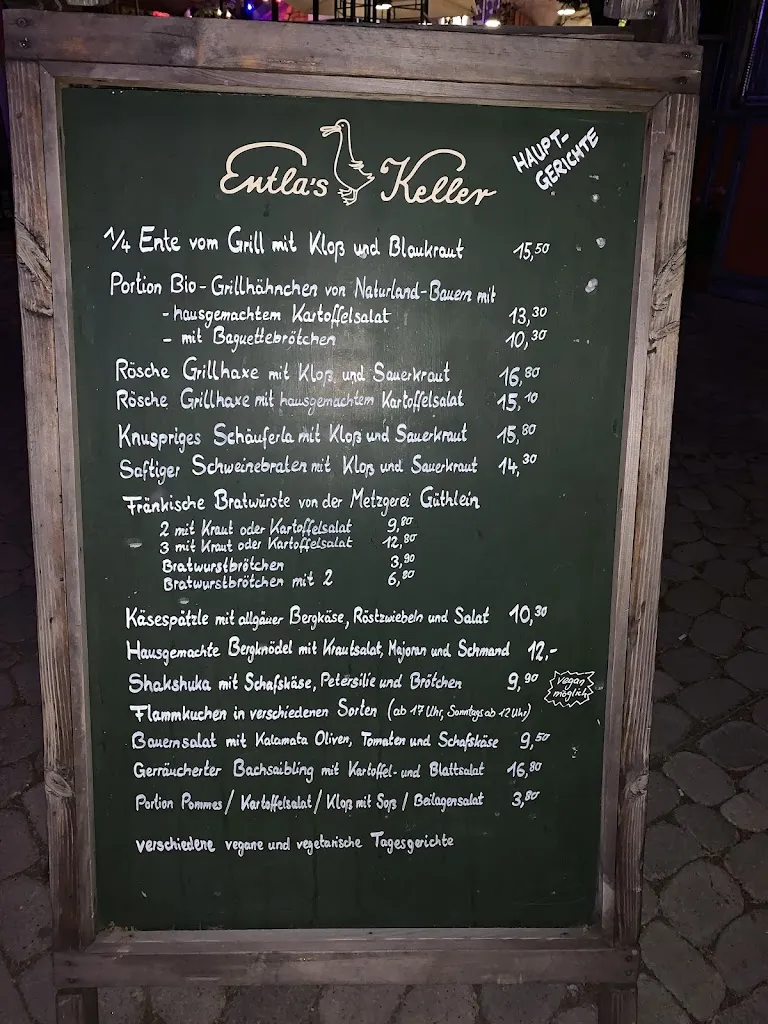 Entla's Keller
HAUPT-
GERICHTE
1/4 Ente vom Grill mit Kloß und Blaukraut 15,50
Portion Bio-Grillhähnchen von Naturland-Bauern mit
- hausgemachtem Kartoffelsalat 13,30
- mit Baguettebrötchen 10,30
Rösche Grillhaxe mit Kloß und Sauerkraut 16,80
Rösche Grillhaxe mit hausgemachtem Kartoffelsalat 15,10
Knuspriges Schäuferla mit Kloß und Sauerkraut 15,80
Saftiger Schweinebraten mit Kloß und Sauerkraut 14,30
Fränkische Bratwürste von der Metzgerei Güthlein
2 mit Kraut oder Kartoffelsalat 9,80
3 mit Kraut oder Kartoffelsalat 12,80
Bratwurstbrötchen 3,90
Bratwurstbrötchen mit 2 6,80
Käsespätzle mit allgäuer Bergkäse, Röstzwiebeln und Salat 10,30
Hausgemachte Bergknödel mit Krautsalat, Majoran und Schmand 12,-
Shakshuka mit Schafskäse, Petersilie und Brötchen 9,90
vegan
möglich
Flammkuchen in verschiedenen Sorten (ab 17 Uhr, Sonntags ab 12 Uhr)
Bauernsalat mit Kalamata Oliven, Tomaten und Schafskäse 9,50
Gerräucherter Bachsaibling mit Kartoffel- und Blattsalat 16,80
Portion Pommes / Kartoffelsalat / Kloß mit Soß / Beilagensalat 3,80
verschiedene vegane und vegetarische Tagesgerichte